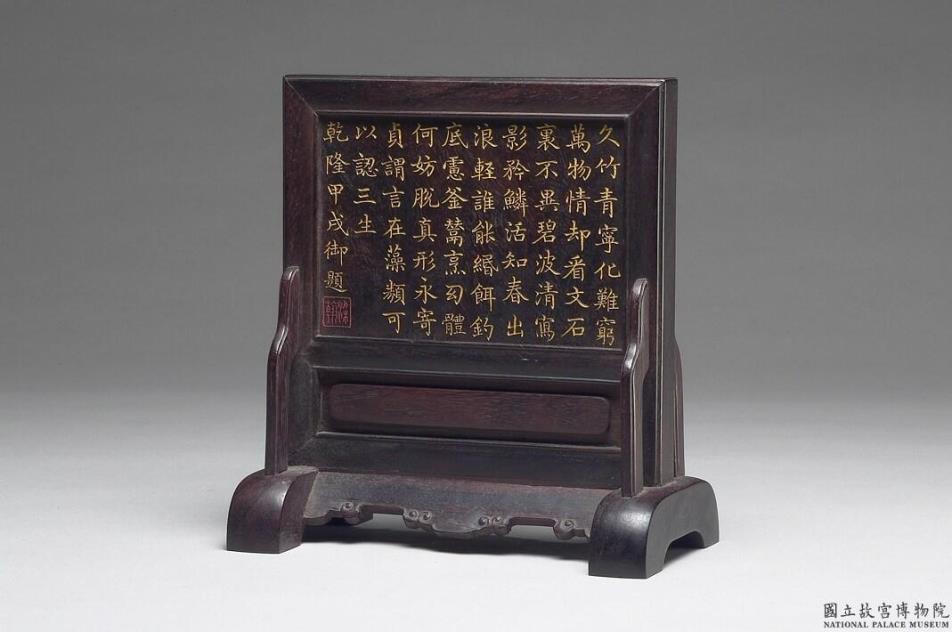 久竹青寧化難窮
萬物情却看文石
裏不異碧波清寫
影矜鱗活知春出
浪輕誰能緡餌釣
底慮釜鬵烹勿體
何妨脫真形永寄
貞謂言在藻頻可
以認三生
乾隆甲戌御題
國立故宮博物院
NATIONAL PALACE MUSEUM